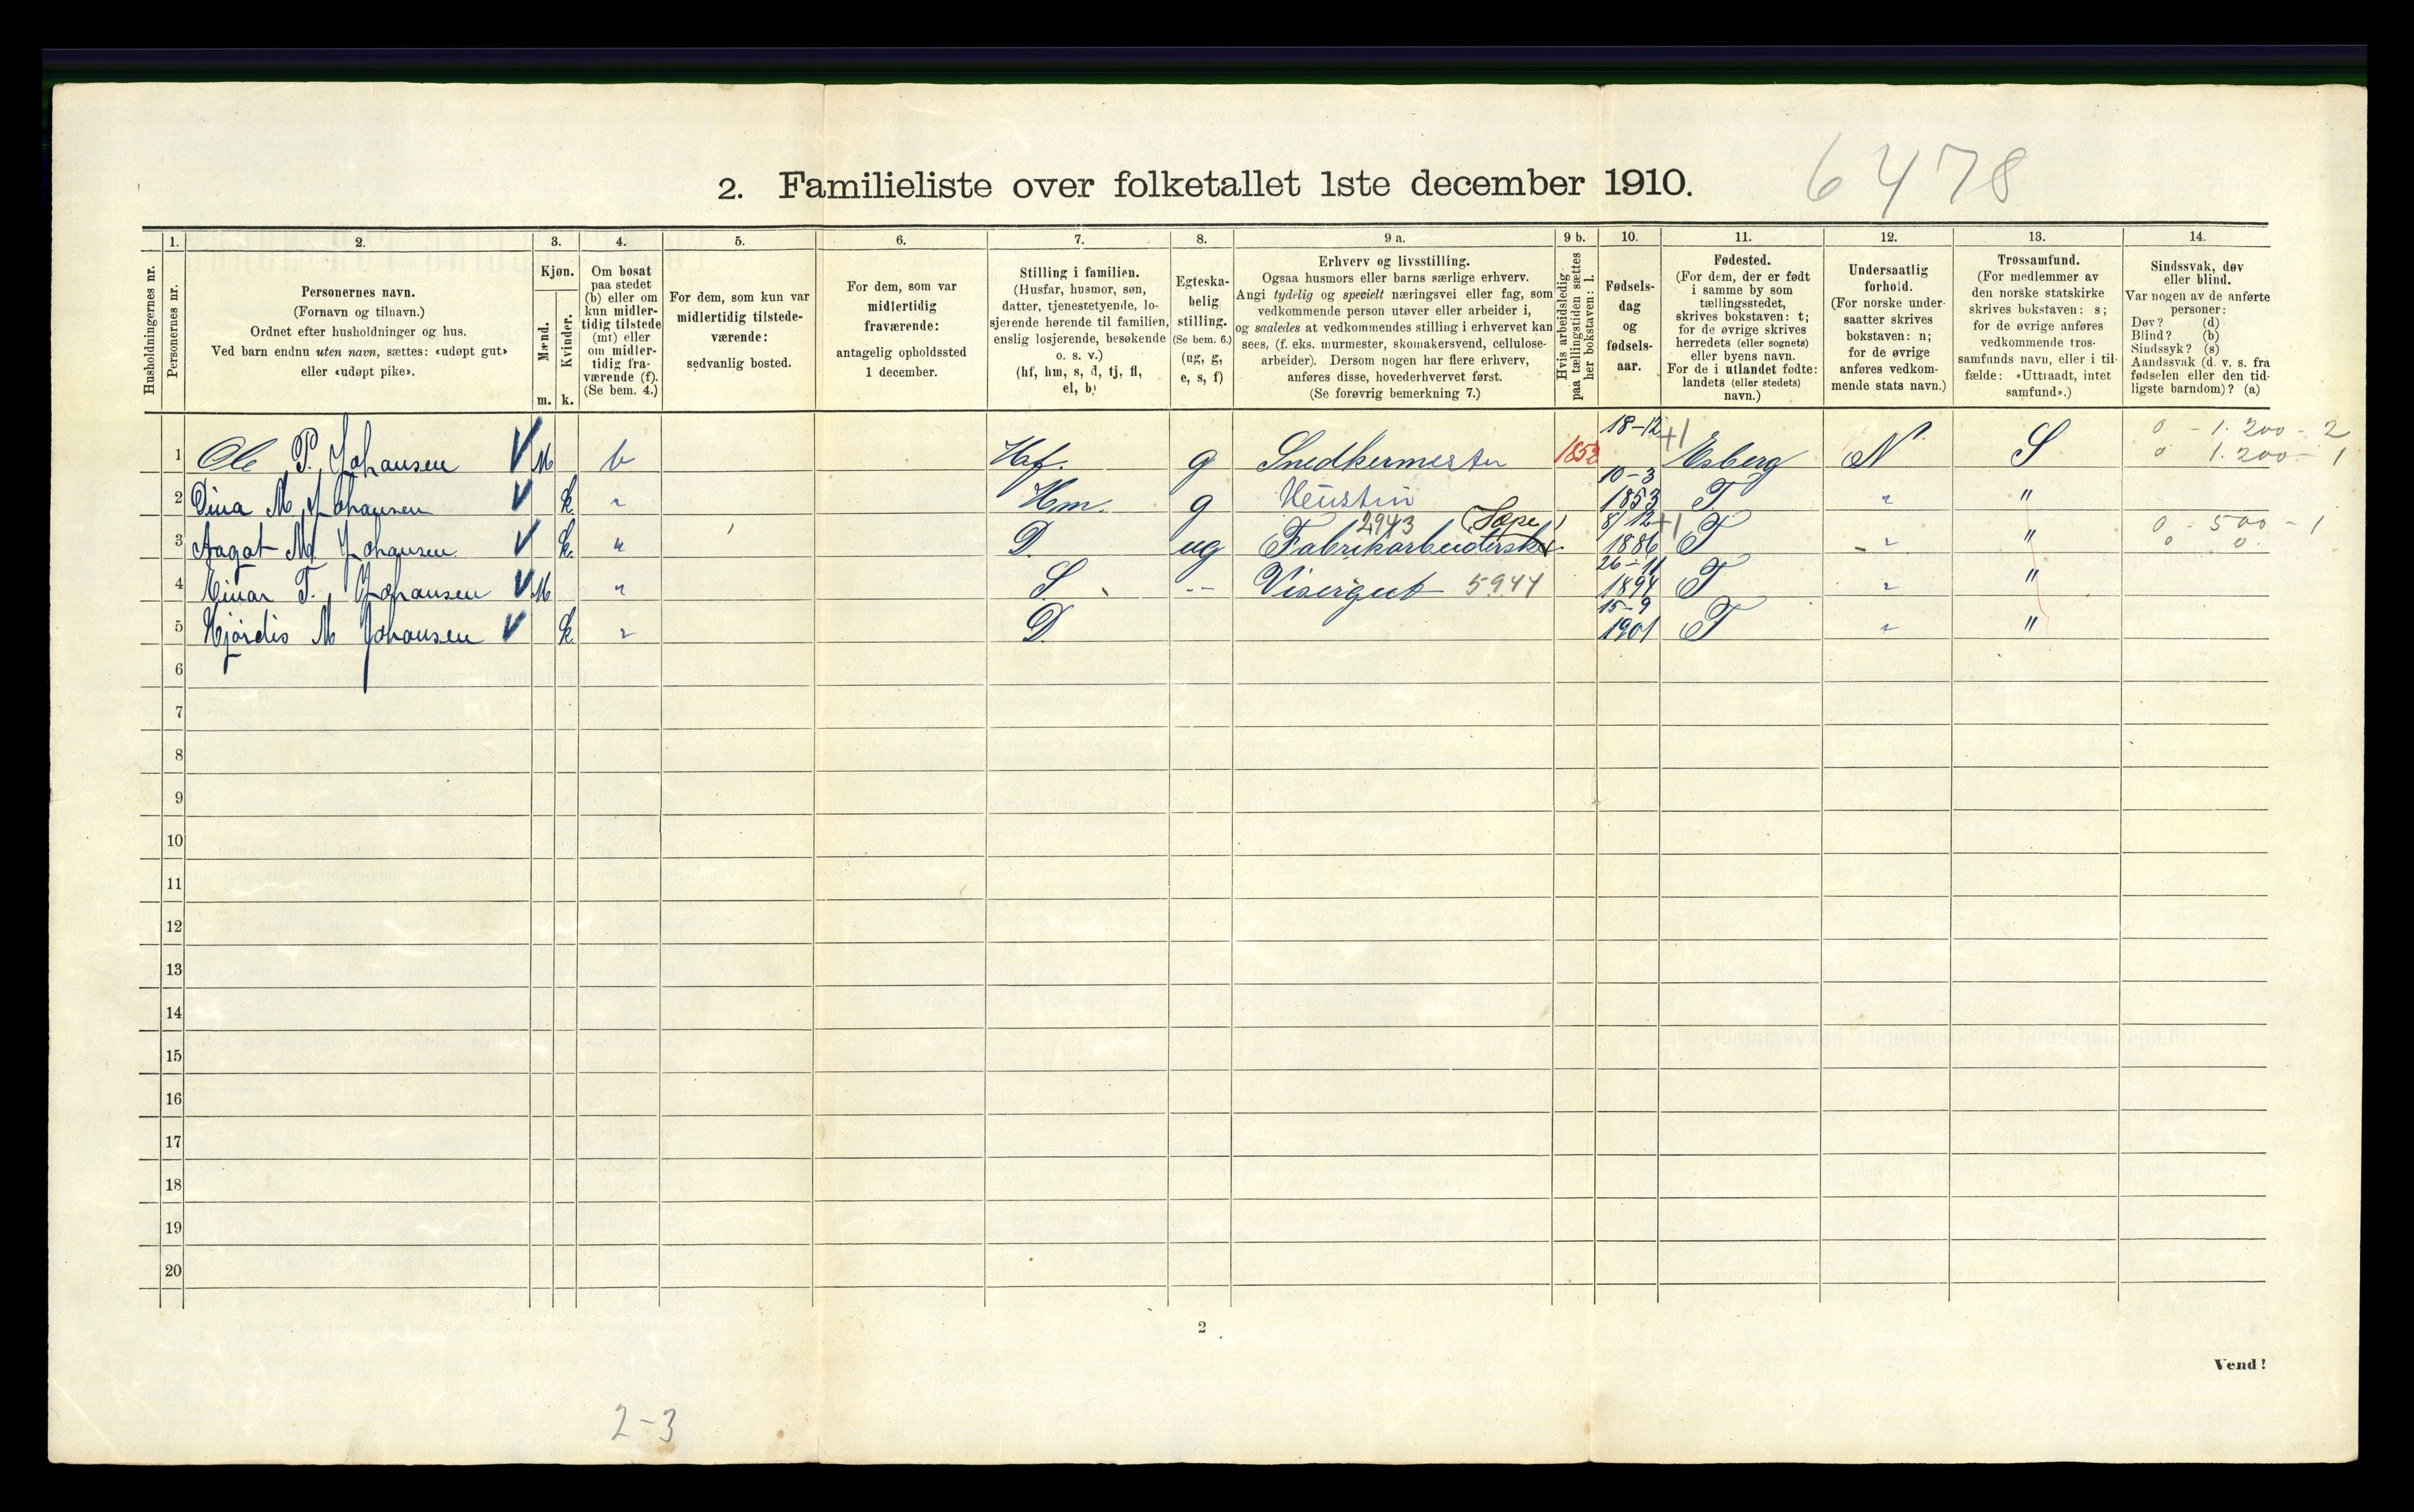 6478
2. Familieliste over folketallet 1ste december 1910.
1. 2. 3. 4. 5. 6. 7. 8. 9 a. 9 b. 10. 11. 12. 13. 14.
Husholdningernes nr.
Personernes nr.
Personernes navn.
(Fornavn og tilnavn.)
Ordnet efter husholdninger og hus.
Ved barn endnu uten navn, sættes: «udøpt gut»
eller «udøpt pike».
Kjøn.
Mænd.
Kvinder.
m. k.
Om bosat
paa stedet
(b) eller om
kun midler-
tidig tilstede
(mt) eller
om midler-
tidig fra-
værende (f).
(Se bem. 4.)
For dem, som kun var
midlertidig tilstede-
værende:
sedvanlig bosted.
For dem, som var
midlertidig
fraværende:
antagelig opholdssted
1 december.
Stilling i familien.
(Husfar, husmor, søn,
datter, tjenestetyende, lo-
sjerende hørende til familien,
enslig losjerende, besøkende
o. s. v.)
(hf, hm, s, d, tj, fl,
el, b)
Egteska-
belig
stilling.
(Se bem. 6.)
(ug, g,
e, s, f)
Erhverv og livsstilling.
Ogsaa husmors eller barns særlige erhverv.
Angi tydelig og specielt næringsvei eller fag, som
vedkommende person utøver eller arbeider i,
og saaledes at vedkommendes stilling i erhvervet kan
sees, (f. eks. murmester, skomakersvend, cellulose-
arbeider). Dersom nogen har flere erhverv,
anføres disse, hovederhvervet først.
(Se forøvrig bemerkning 7.)
Hvis arbeidsledig
paa tællingstiden sættes
her bokstaven: l.
Fødsels-
dag
og
fødsels-
aar.
Fødested.
(For dem, der er født
i samme by som
tællingsstedet,
skrives bokstaven: t;
for de øvrige skrives
herredets (eller sognets)
eller byens navn.
For de i utlandet fødte:
landets (eller stedets)
navn.)
Undersaatlig
forhold.
(For norske under-
saatter skrives
bokstaven: n;
for de øvrige
anføres vedkom-
mende stats navn.)
Trossamfund.
(For medlemmer av
den norske statskirke
skrives bokstaven: s;
for de øvrige anføres
vedkommende tros-
samfunds navn, eller i til-
fælde: «Uttraadt, intet
samfund».)
Sindssvak, døv
eller blind.
Var nogen av de anførte
personer:
Døv? (d)
Blind? (b)
Sindssyk? (s)
Aandssvak (d. v. s. fra
fødselen eller den tid-
ligste barndom)? (a)
18-12 +1 0 - 1.200 - 2
1 Ole P. Johansen V M b Hf. g Snedkermester 1852 Esberg N S 0 1.200 - 1
10-3
2 Dina M Johansen V k " Hm. g 1853 T. " "
2943 (Sæpe) 8/12 +1 0 - 500 - 1
3 Aagot M Johansen V k. " D. ug Fabrikarbeiderske. 1886 T " " 0 0.
26-11
4 Einar T. Johansen V M " S. -- Visergut 5944 1894 T " "
15-9
5 Hjørdis M Johansen V k " D. 1901 T " "
6
7
8
9
10
11
12
13
14
15
16
17
18
19
20
2
Vend!
2-3